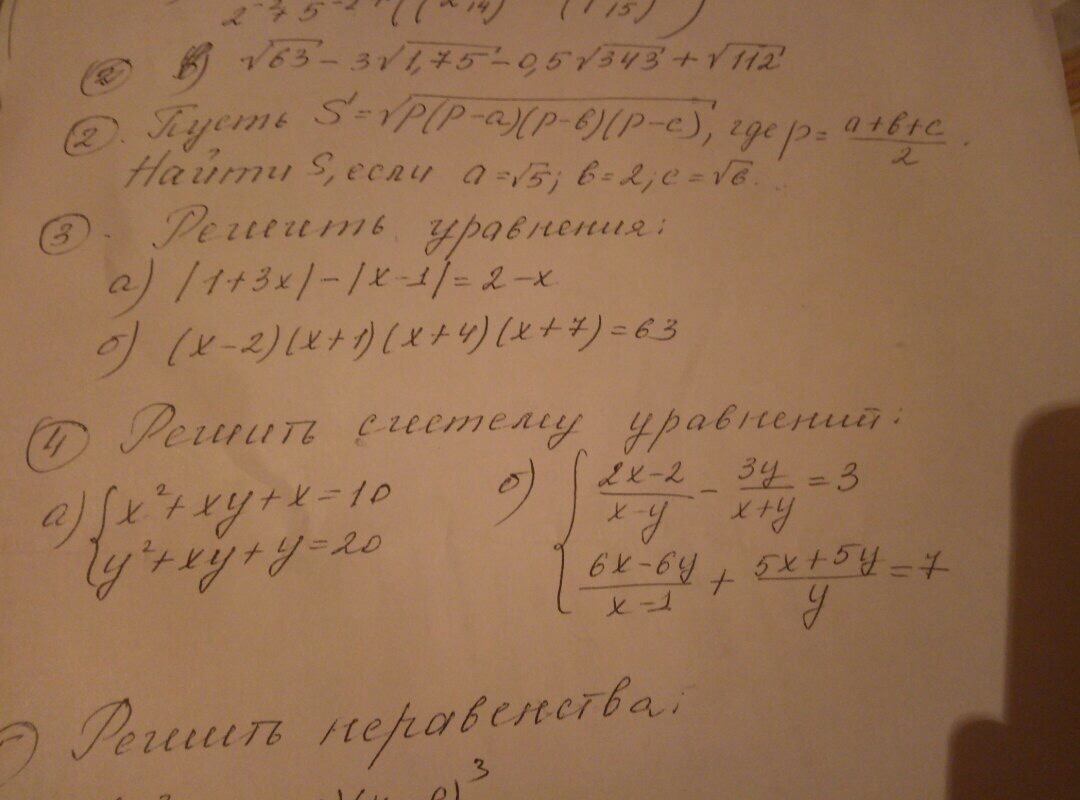 2⁻² + 5⁻²
② в) √63 - 3√1,75 - 0,5√343 + √112
②. Пусть S = √p(p-a)(p-в)(p-c), где p = (a+в+c)/2.
Найти S, если a = √5; в = 2; c = √6.
③. Решить уравнения:
а) |1+3x| - |x-1| = 2-x
б) (x-2)(x+1)(x+4)(x+7) = 63
④ Решить систему уравнений:
а) { x² + xy + x = 10
y² + xy + y = 20
б) { (2x-2)/(x-y) - 3y/(x+y) = 3
(6x-6y)/(x-1) + (5x+5y)/y = 7
Решить неравенства: